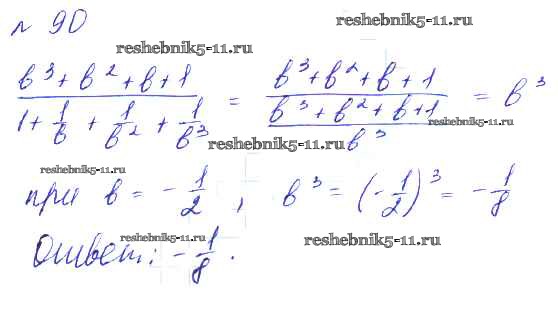 № 90
reshebnik5-11.ru
reshebnik5-11.ru
(в³ + в² + в + 1) / (1 + 1/в + 1/в² + 1/в³) = (в³ + в² + в + 1) / ((в³ + в² + в + 1) / в³) = в³
reshebnik5-11.ru
reshebnik5-11.ru
reshebnik5-11.ru
при в = -1/2 , в³ = (-1/2)³ = -1/8
reshebnik5-11.ru
reshebnik5-11.ru
Ответ: -1/8 .